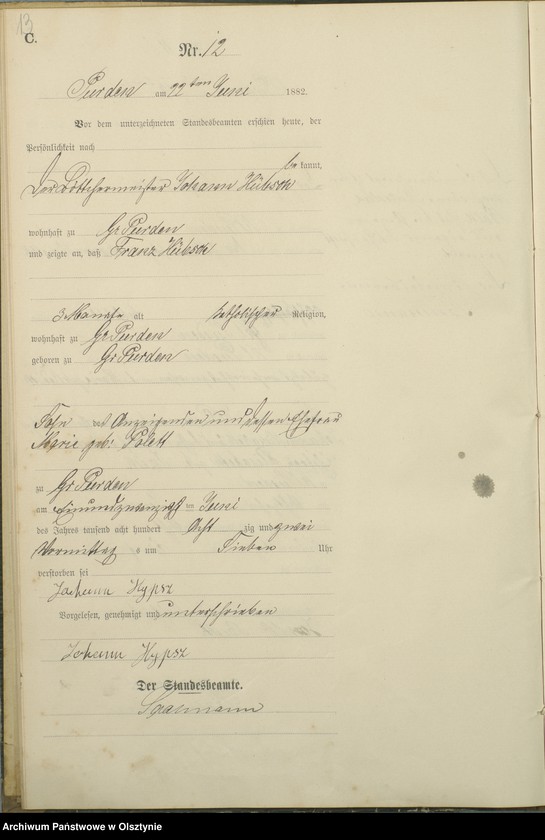 13
C.
Nr. 12
Purden am 22ten Juni 1882.
Vor dem unterzeichneten Standesbeamten erschien heute, der
Persönlichkeit nach
be kannt,
Der Böttchermeister Johann Hübsch
wohnhaft zu Gr Purden
und zeigte an, daß Franz Hübsch
3 Monate alt katholischer Religion,
wohnhaft zu Gr Purden
geboren zu Gr Purden
Sohn des Anzeigenden und dessen Ehefrau
Marie geb:
zu Gr Purden
am Einundzwanzigst ten Juni
des Jahres tausend acht hundert Acht zig und zwei
Vormittag s um Sieben Uhr
verstorben sei
Johann Hypsz
Vorgelesen, genehmigt und unterschrieben
Johann Hypsz
Der Standesbeamte.
Archiwum Państwowe w Olsztynie